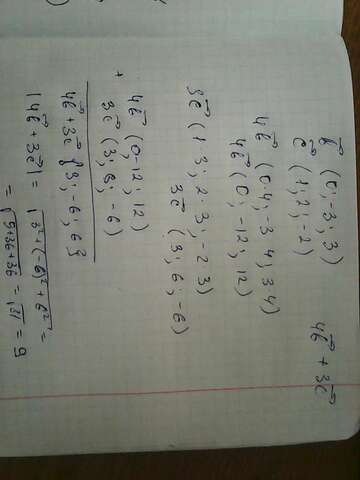 4b⃗ + 3c⃗
b⃗ (0; -3; 3)
c⃗ (1; 2; -2)
4b⃗ (0·4; -3·4; 3·4)
4b⃗ (0; -12; 12)
3c⃗ (1·3; 2·3; -2·3)
3c⃗ (3; 6; -6)
+ 4b⃗ (0; -12; 12)
3c⃗ (3; 6; -6)
4b⃗ + 3c⃗ {3; -6; 6}
|4b⃗ + 3c⃗| = √3² + (-6)² + 6² =
= √9 + 36 + 36 = √81 = 9